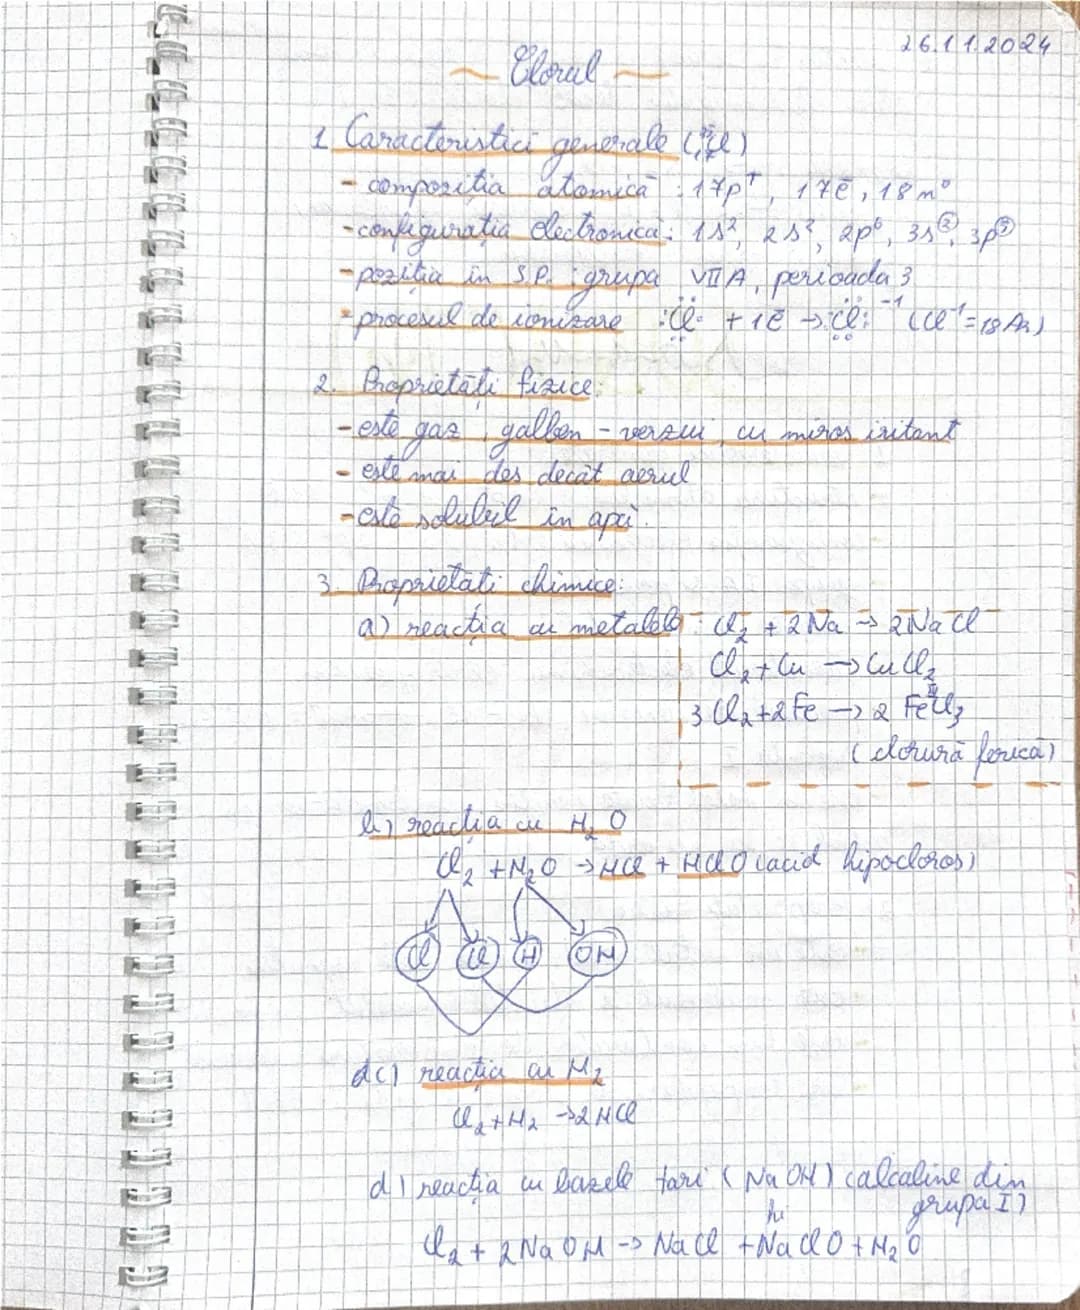 26.11.2024
~ Clorul ~
1 Caracteristici generale (³⁵₁₇Cl)
- compoziția atomică : 17p⁺, 17ē, 18n⁰
- configurația electronică: 1s², 2s², 2p⁶, 3s②, 3p⑤
- poziția în S.P. : grupa VII A, perioada 3
- procesul de ionizare :Cl· + 1ē → :Cl:⁻¹ (Cl⁻¹ = 18Ar)
2. Proprietăți fizice:
- este gaz, galben - verzui, cu miros iritant
- este mai des decât aerul
- este solubil în apă.
3. Proprietăți chimice:
a) reacția cu metalele : Cl₂ + 2Na → 2NaCl
Cl₂ + Cu → CuCl₂
3Cl₂ + 2Fe → 2 FeᴵᴵᴵCl₃
(clorură ferică)
b) reacția cu H₂O
Cl₂ + H₂O → HCl + HClO (acid hipocloros)
Cl Cl H OH
dc) reacția cu H₂
Cl₂ + H₂ → 2HCl
d) reacția cu bazele tari (NaOH) calcaline din
grupa I)
Cl₂ + 2NaOH → NaCl + NaClO + H₂O